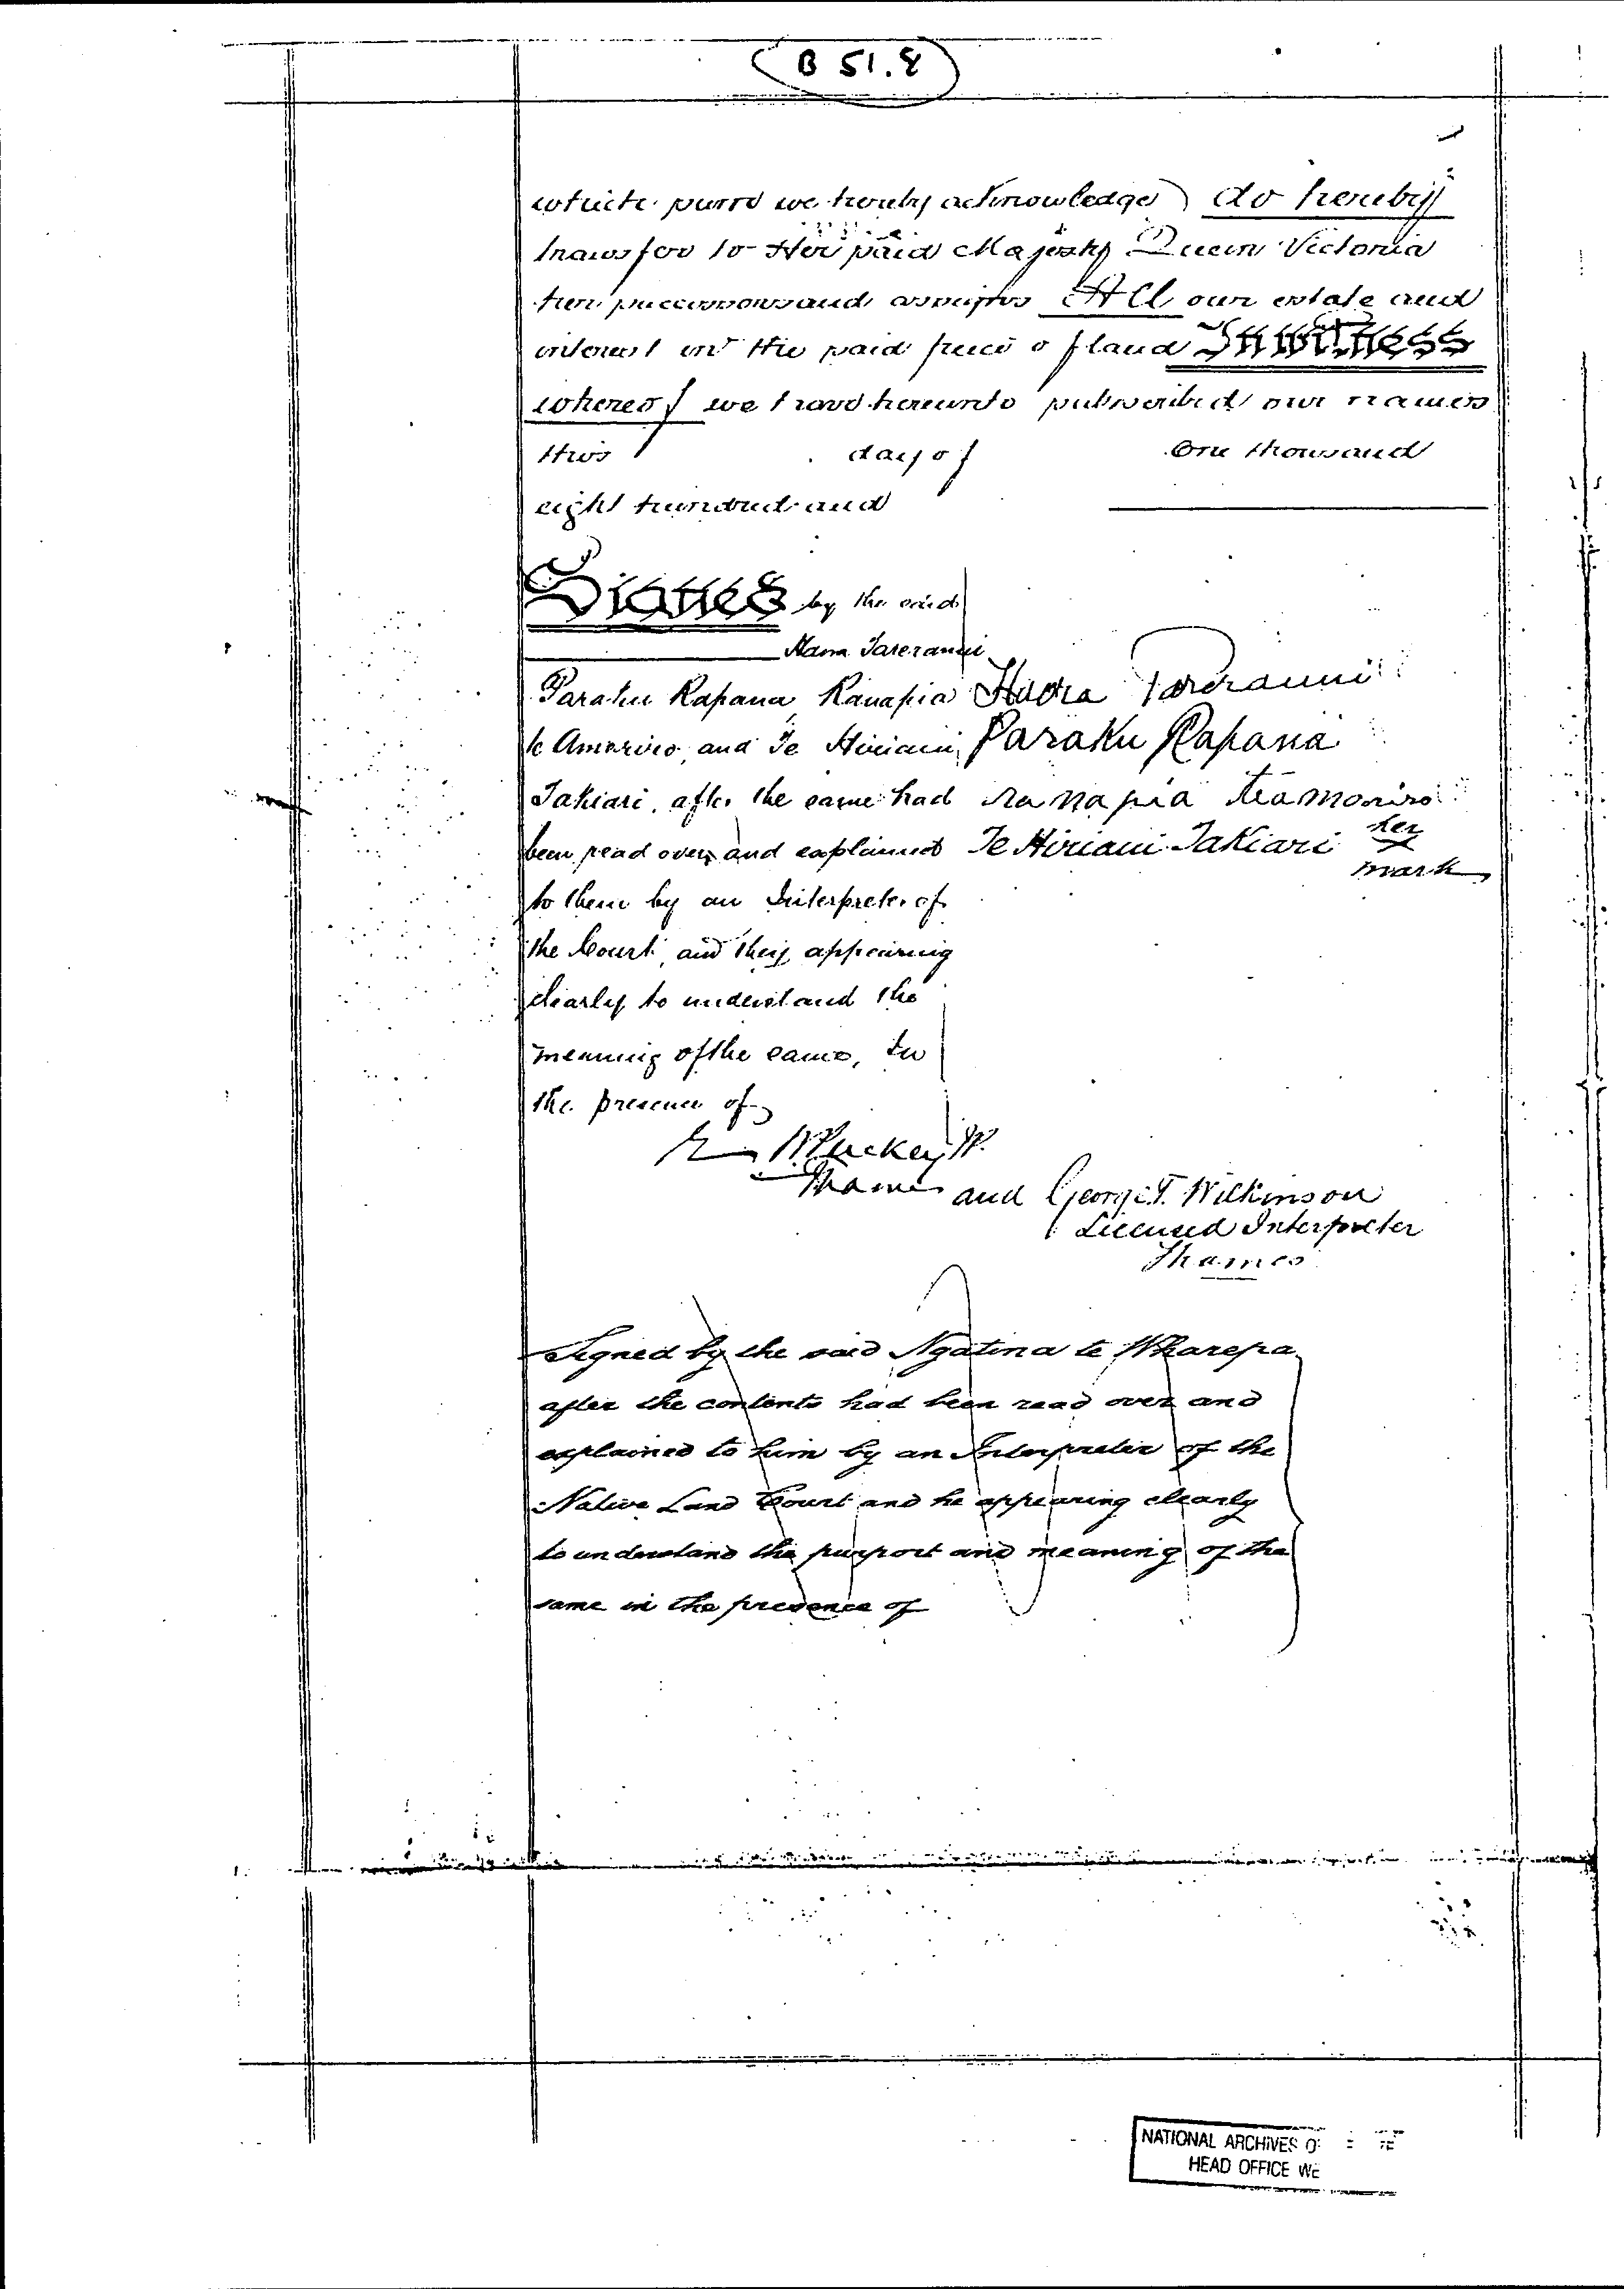 B 51.8
which sum we hereby acknowledge) do hereby
transfer to Her said Majesty Queen Victoria
her successors and assigns All our estate and
interest in the said piece of land In witness
whereof we have hereunto subscribed our names
this day of One thousand
eight hundred and
Signed by the said
Hana Tareranui
Paraku Rapana Ranapia Haora Tareranui
te Amoriro, and Te Hiriani Paraku Rapana
Takiari, after the same had Ranapia te amoriro
been read over and explained Te Hiriani Takiari her
x
mark
to them by an Interpreter of
the Court, and they appearing
clearly to understand the
meaning of the same, In
the presence of
Puckey
Thames and George T. Wilkinson
Licensed Interpreter
Thames
Signed by the said Ngatina te Wharepa
after the contents had been read over and
explained to him by an Interpreter of the
Native Land Court and he appearing clearly
to understand the purport and meaning of the
same in the presence of
NATIONAL ARCHIVES O
HEAD OFFICE WE